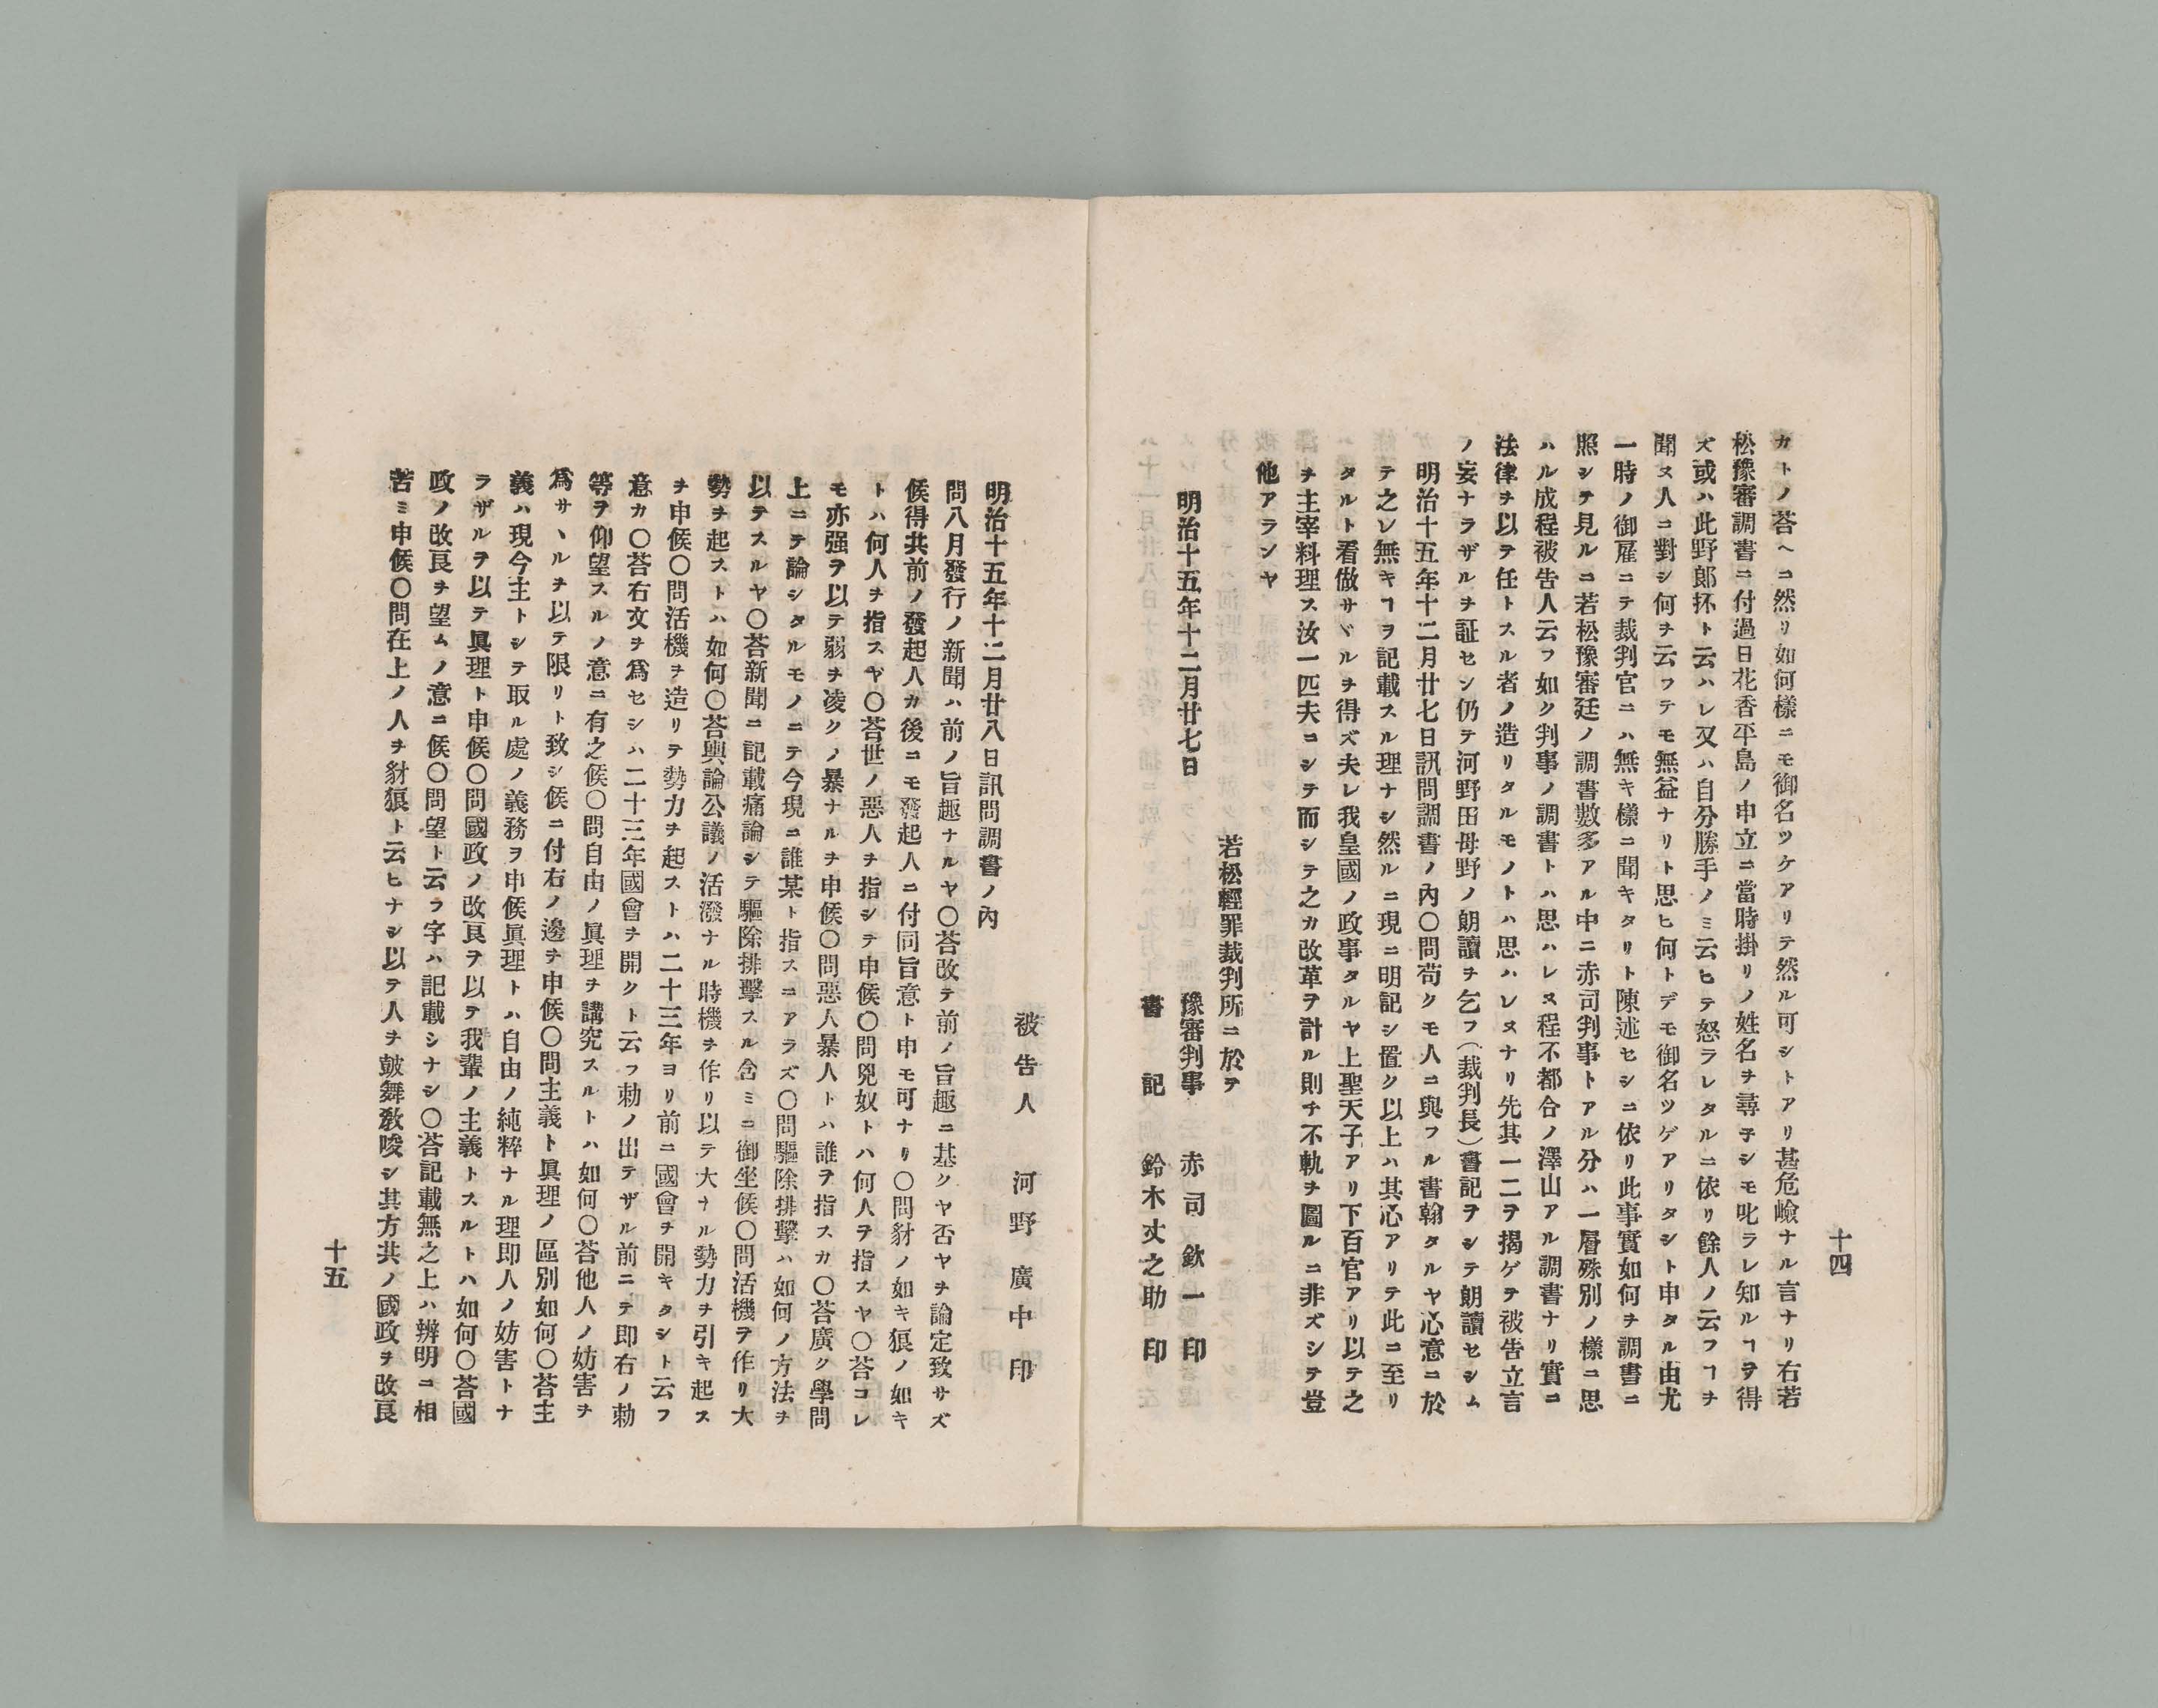 十四
カトノ荅ヘコ然リ如何樣ニモ御名ツケアリテ然ル可シトアリ甚危嶮ナル言ナリ右若
松豫審調書ニ付過日花香平島ノ申立ニ當時掛リノ姓名ヲ尋子シモ叱ラレ知ルヿヲ得
ズ或ハ此野郞抔ト云ハレ又ハ自分勝手ノミ云ヒテ怒ラレタルニ依リ餘人ノ云フヿヲ
聞ヌ人ニ對シ何ヲ云フテモ無益ナリト思ヒ何トデモ御名ツゲアリタシト申タル由尤
一時ノ御雇ニテ裁判官ニハ無キ樣ニ聞キタリト陳述セシニ依リ此事實如何ヲ調書ニ
照シテ見ルニ若松豫審廷ノ調書數多アル中ニ赤司判事トアル分ハ一層殊別ノ樣ニ思
ハル成程被告人云フ如ク判事ノ調書トハ思ハレヌ程不都合ノ澤山アル調書ナリ實ニ
法律ヲ以テ任トスル者ノ造リタルモノトハ思ハレヌナリ先其一二ヲ揭ゲテ被告立言
ノ妄ナラザルヲ証セシ仍テ河野田母野ノ朗讀ヲ乞フ(裁判長)書記ヲシテ朗讀セシム
明治十五年十二月廿七日訊問調書ノ內〇問苟クモ人ニ與フル書翰タルヤ心意ニ於
テ之レ無キヿヲ記載スル理ナシ然ルニ現ニ明記シ置ク以上ハ其心アリテ此ニ至リ
タルト看做サヾルヲ得ズ夫レ我皇國ノ政事タルヤ上聖天子アリ下百官アリ以テ之
ヲ主宰料理ス汝一匹夫ニシテ而シテ之カ改革ヲ計ル則チ不軌ヲ圖ルニ非ズシテ豈
他アランヤ
若松輕罪裁判所ニ於テ
明治十五年十二月廿七日 豫審判事 赤司欽一印
書記 鈴木丈之助印
被告人 河野廣中印
明治十五年十二月廿八日訊問調書ノ內
問八月發行ノ新聞ハ前ノ旨趣ナルヤ〇荅改テ前ノ旨趣ニ基クヤ否ヤヲ論定致サズ
候得共前ノ發起人カ後ニモ發起人ニ付同旨意ト申モ可ナリ〇問豺ノ如キ狼ノ如キ
トハ何人ヲ指スヤ〇荅世ノ惡人ヲ指シテ申候〇問兇奴トハ何人ヲ指スヤ〇荅コレ
モ亦强ヲ以テ弱ヲ凌クノ暴ナルヲ申候〇問惡人暴人トハ誰ヲ指スカ〇荅廣ク學問
上ニテ論シタルモノニテ今現ニ誰某ト指スニアラズ〇問驅除排擊ハ如何ノ方法ヲ
以テスルヤ〇荅新聞ニ記載痛論シテ驅除排擊スル含ミニ御坐候〇問活機ヲ作リ大
勢ヲ起ストハ如何〇荅輿論公議ノ活潑ナル時機ヲ作リ以テ大ナル勢力ヲ引キ起ス
ヲ申候〇問活機ヲ造リテ勢力ヲ起ストハ二十三年ヨリ前ニ國會ヲ開キタシト云フ
意カ〇荅右文ヲ爲セシハ二十三年國會ヲ開クト云フ勅ノ出テザル前ニテ即右ノ勅
等ヲ仰望スルノ意ニ有之候〇問自由ノ眞理ヲ講究スルトハ如何〇荅他人ノ妨害ヲ
爲サヽルヲ以テ限リト致シ候ニ付右ノ邊ヲ申候〇問主義ト眞理ノ區別如何〇荅主
義ハ現今主トシテ取ル處ノ義務ヲ申候眞理トハ自由ノ純粹ナル理即人ノ妨害トナ
ラザルヲ以テ眞理ト申候〇問國政ノ改良ヲ以テ我輩ノ主義トスルトハ如何〇荅國
政ノ改良ヲ望ムノ意ニ候〇問望ト云ラ字ハ記載シナシ〇荅記載無之上ハ辨明ニ相
苦ミ申候〇問在上ノ人ヲ豺狼ト云ヒナシ以テ人ヲ皷舞敎唆シ其方共ノ國政ヲ改良
十五